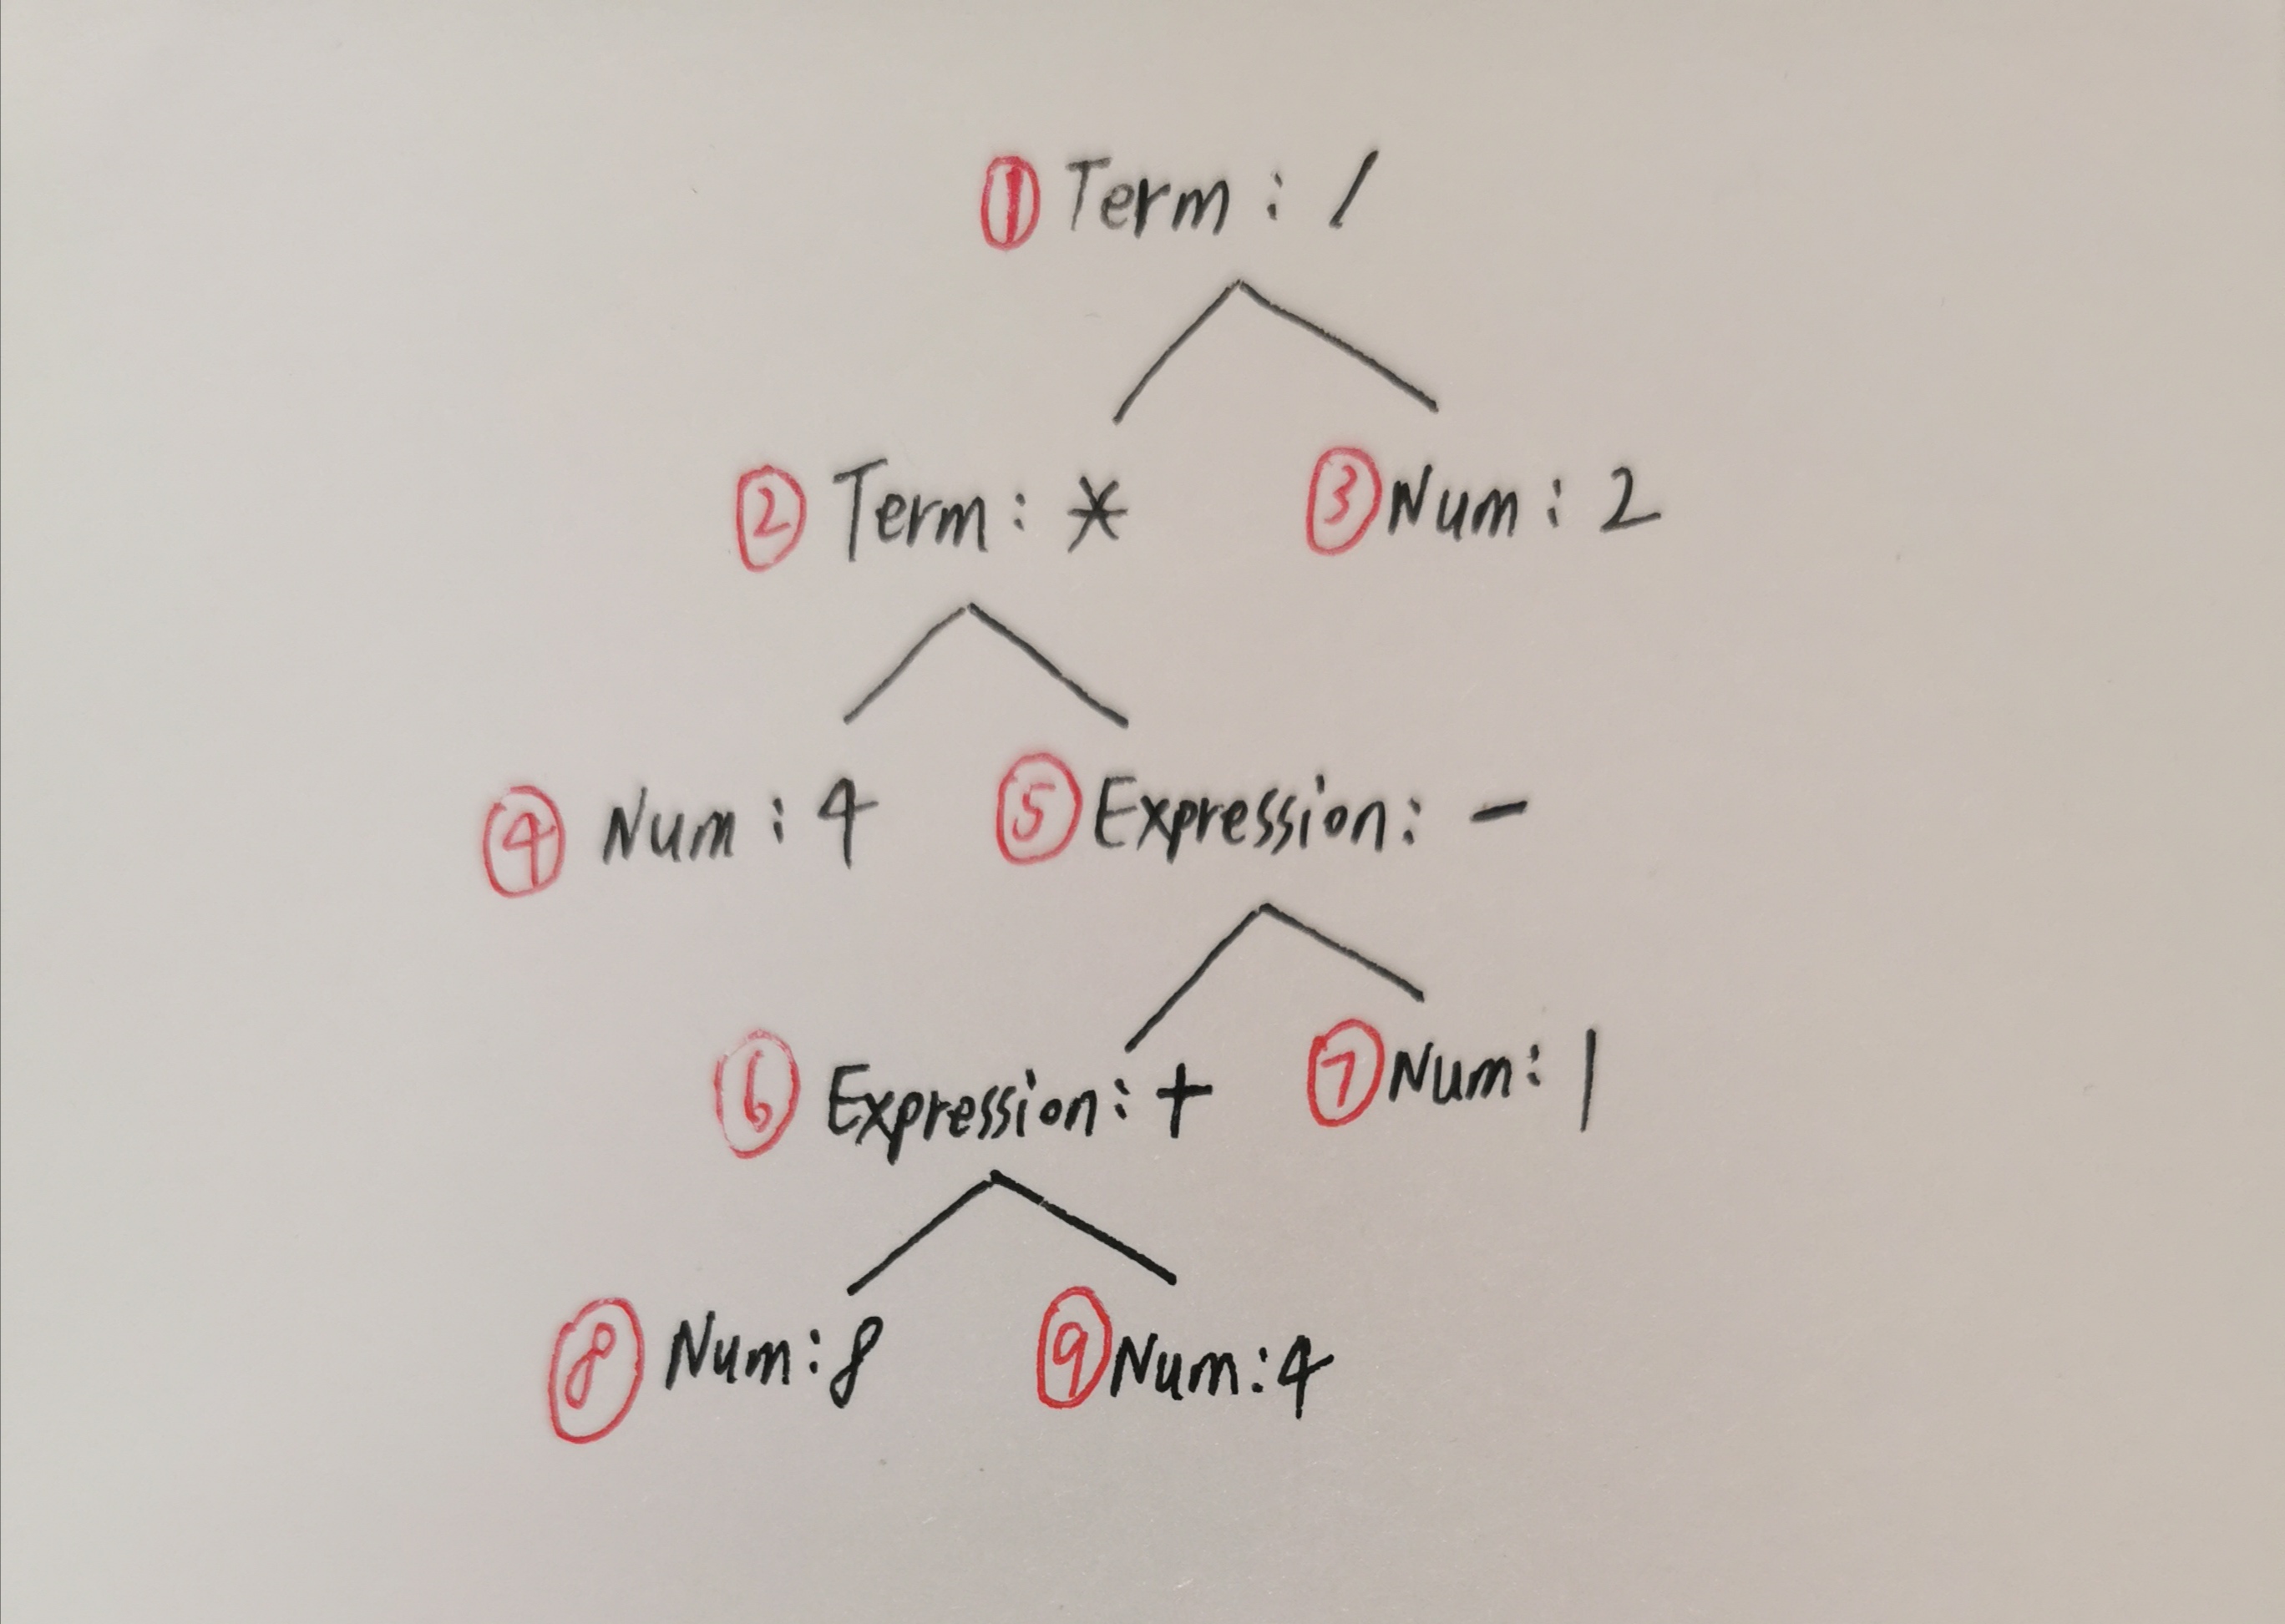 ① Term: /
② Term: * ③ Num: 2
④ Num: 4 ⑤ Expression: -
⑥ Expression: + ⑦ Num: 1
⑧ Num: 8 ⑨ Num: 4